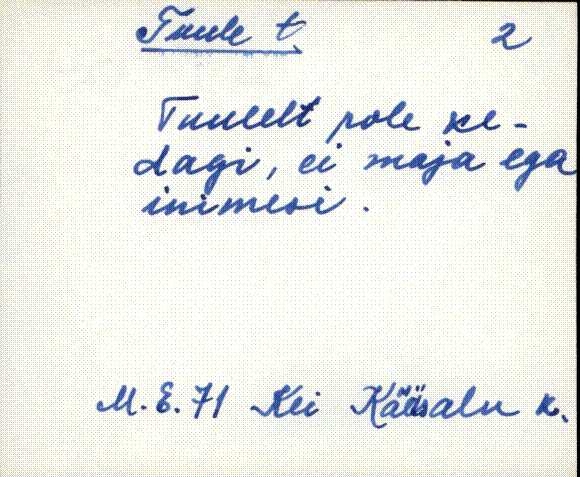 Tuule t. 2
Tuulelt pole ke-
dagi, ei maja ega
inimesi.
M.E.71 Kei Käesalu k.